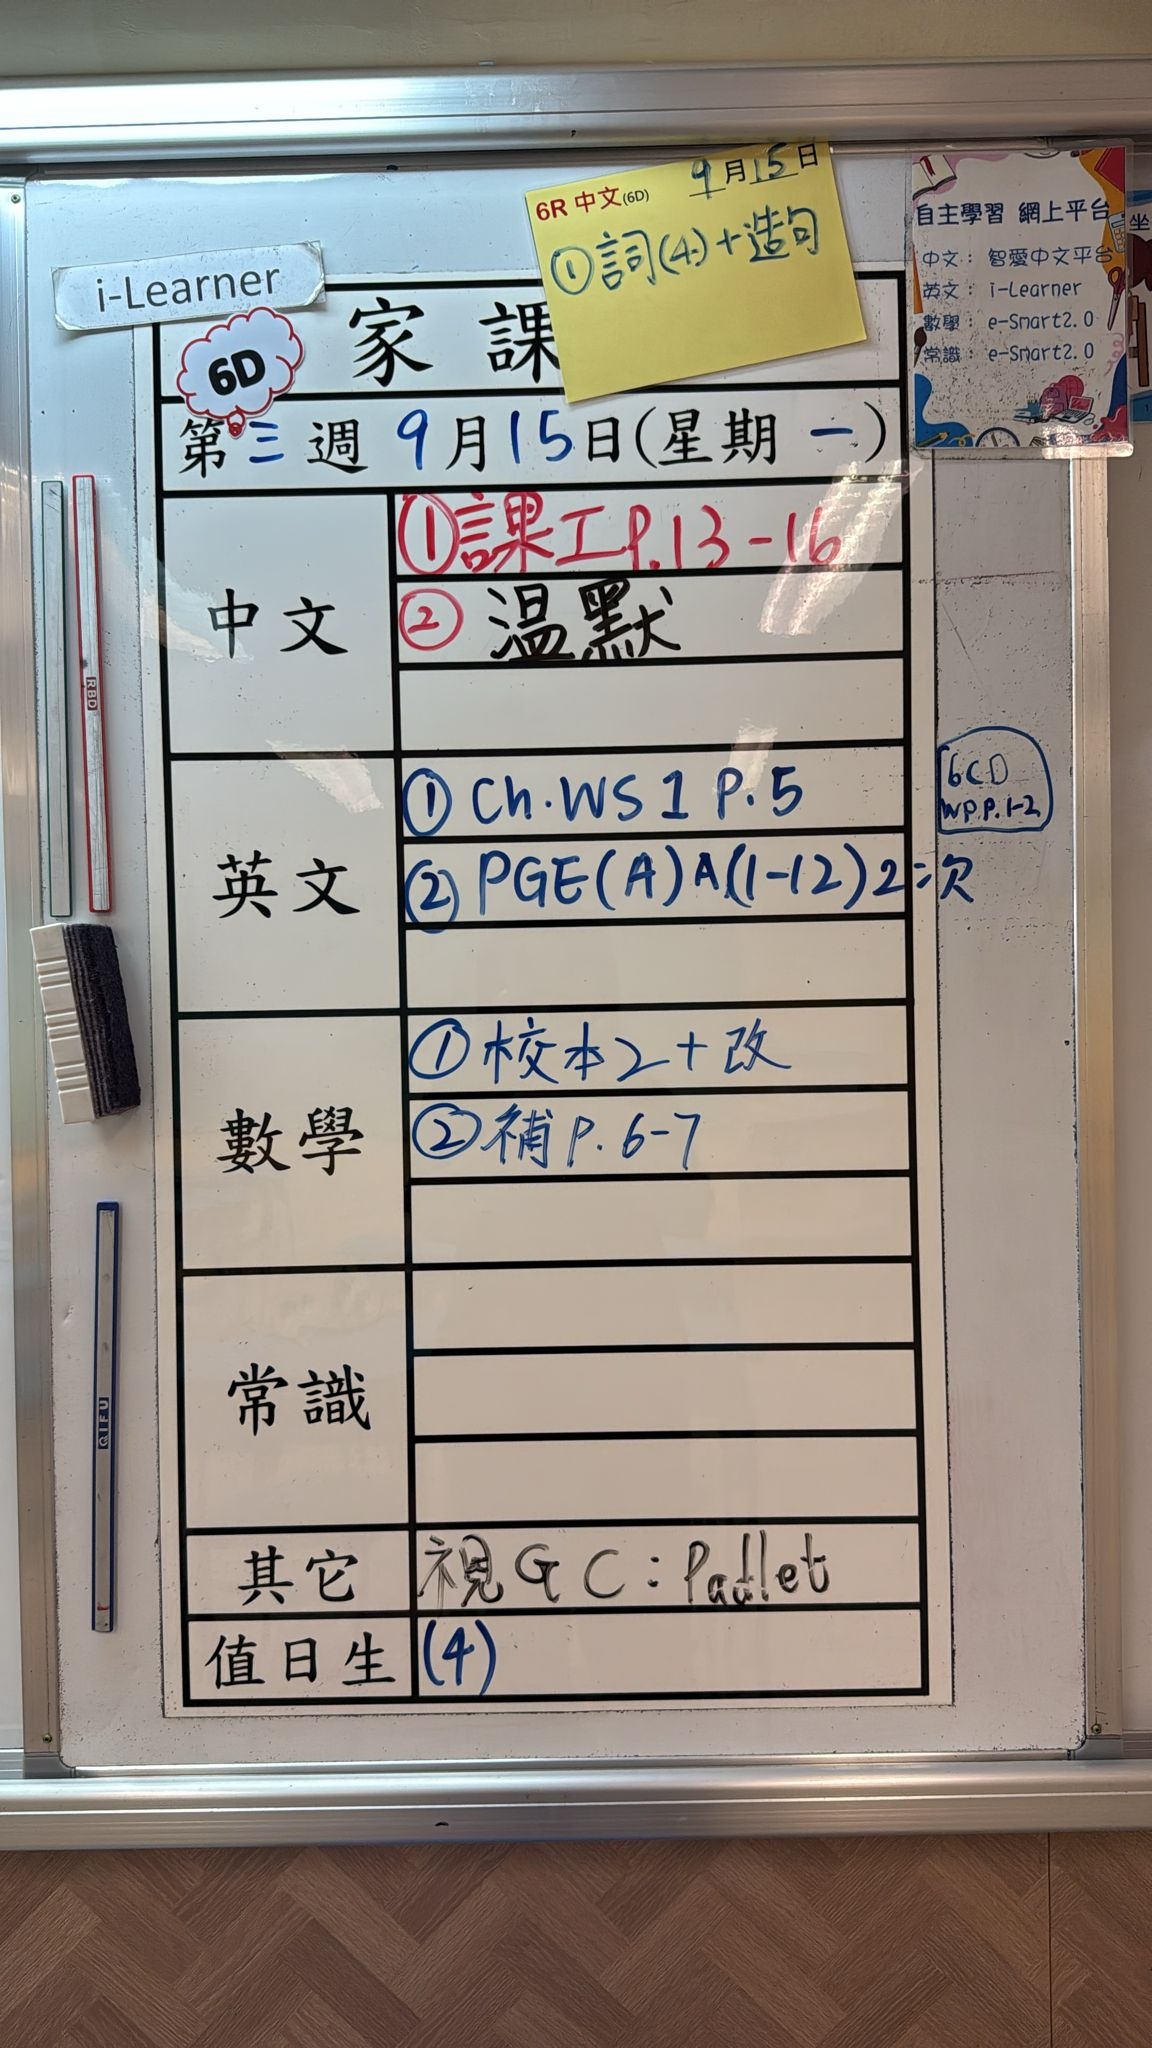 9月15日
6R 中文(6D)
①詞(4)+造句
自主學習 網上平台
中文： 智愛中文平台
英文： i-Learner
數學： e-Smart2.0
常識： e-Smart2.0
坐
i-Learner
6D
家課
第三週 9月15日(星期一)
中文
①課工P.13-16
② 溫默
英文
① Ch.WS 1 P.5
6CD
WP.P.1-2
② PGE(A)A(1-12)2次
數學
①校本2+改
②補P.6-7
常識
其它
視GC:Padlet
值日生
(4)
RBD
QIFU